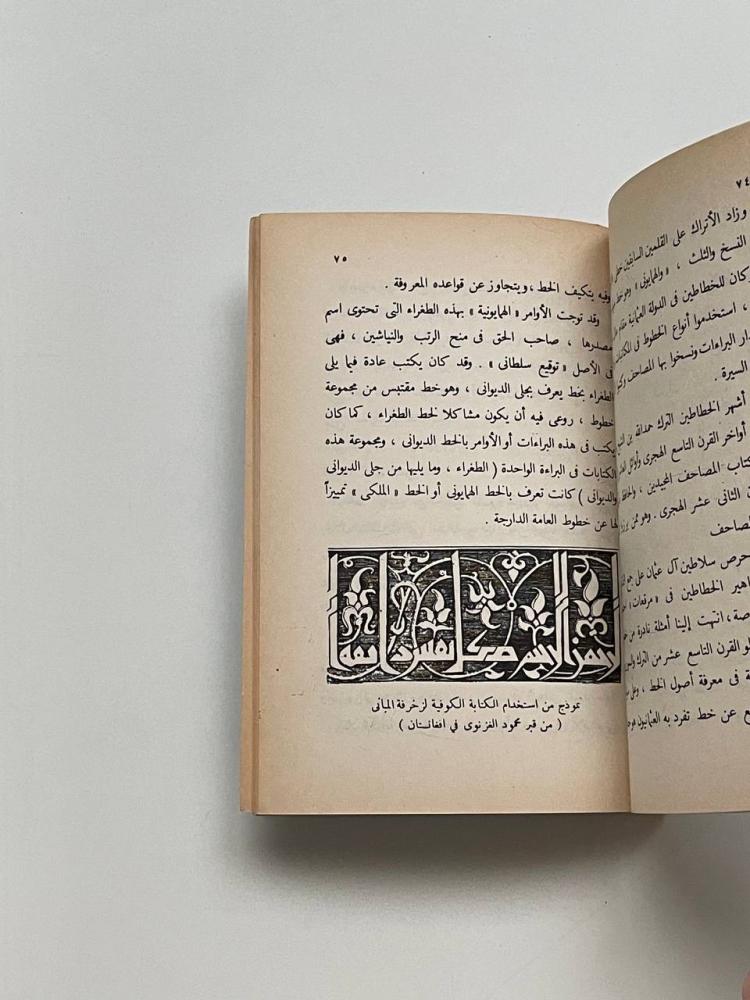 ٧٤
وزاد الأتراك على القلمين السابقين
النسخ والثلث ، « والهمايونى » وهو خط
وكان للخطاطين فى الدولة العثمانية مقام
، استخدموا أنواع الخطوط فى
البراءات ونسخوا بها المصاحف
السيرة .
أشهر الخطاطين الترك حمدالله بن
أواخر القرن التاسع الهجرى وأوائل
كتاب المصاحف المجيدين ،
الثانى عشر الهجرى . وهو ممن
حرص سلاطين آل عثمان على جمع
الخطاطين فى « مرقعات »
، انتهت إلينا أمثلة نادرة من
القرن التاسع عشر من الترك
فى معرفة أصول الخط ،
عن خط تفرد به العثمانيون
٧٥
وفيه يتكيف الخط ، ويتجاوز عن قواعده المعروفة .
وقد توجت الأوامر « الهمايونية » بهذه الطغراء التى تحتوى اسم
مصدرها ، صاحب الحق فى منح الرتب والنياشين ، فهى
فى الأصل « توقيع سلطانى » . وقد كان يكتب عادة فيما يلى
الطغراء بخط يعرف بجلى الديوانى ، وهو خط مقتبس من مجموعة
خطوط ، روعى فيه أن يكون مشاكلا لخط الطغراء ، كما كان
يكتب فى هذه البراءات أو الأوامر بالخط الديوانى ، ومجموعة هذه
الكتابات فى البراءة الواحدة ( الطغراء ، وما يليها من جلى الديوانى
والديوانى ) كانت تعرف بالخط الهمايونى أو الخط « الملكى » تمييزاً
لها عن خطوط العامة الدارجة .
نموذج من استخدام الكتابة الكوفية لزخرفة المبانى
( من قبر محمود الغزنوى في افغانستان )